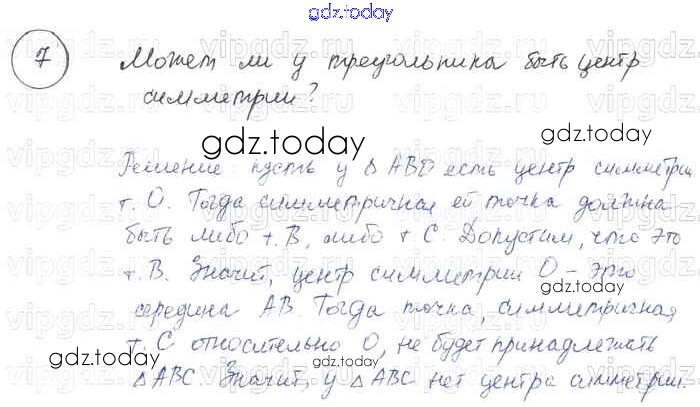 gdz.today
7 Может ли у треугольника быть центр
симметрии?
gdz.today
Решение: пусть у △ ABC есть центр симметрии
т. О. Тогда симметричная ей точка должна
быть либо т. В, либо т С. Допустим, что это
т. В. Значит, центр симметрии О – это
gdz.today
середина АВ. Тогда точка, симметричная
т. С относительно О, не будет принадлежать
gdz.today
△ АВС. Значит, у △ АВС нет центра симметрии.